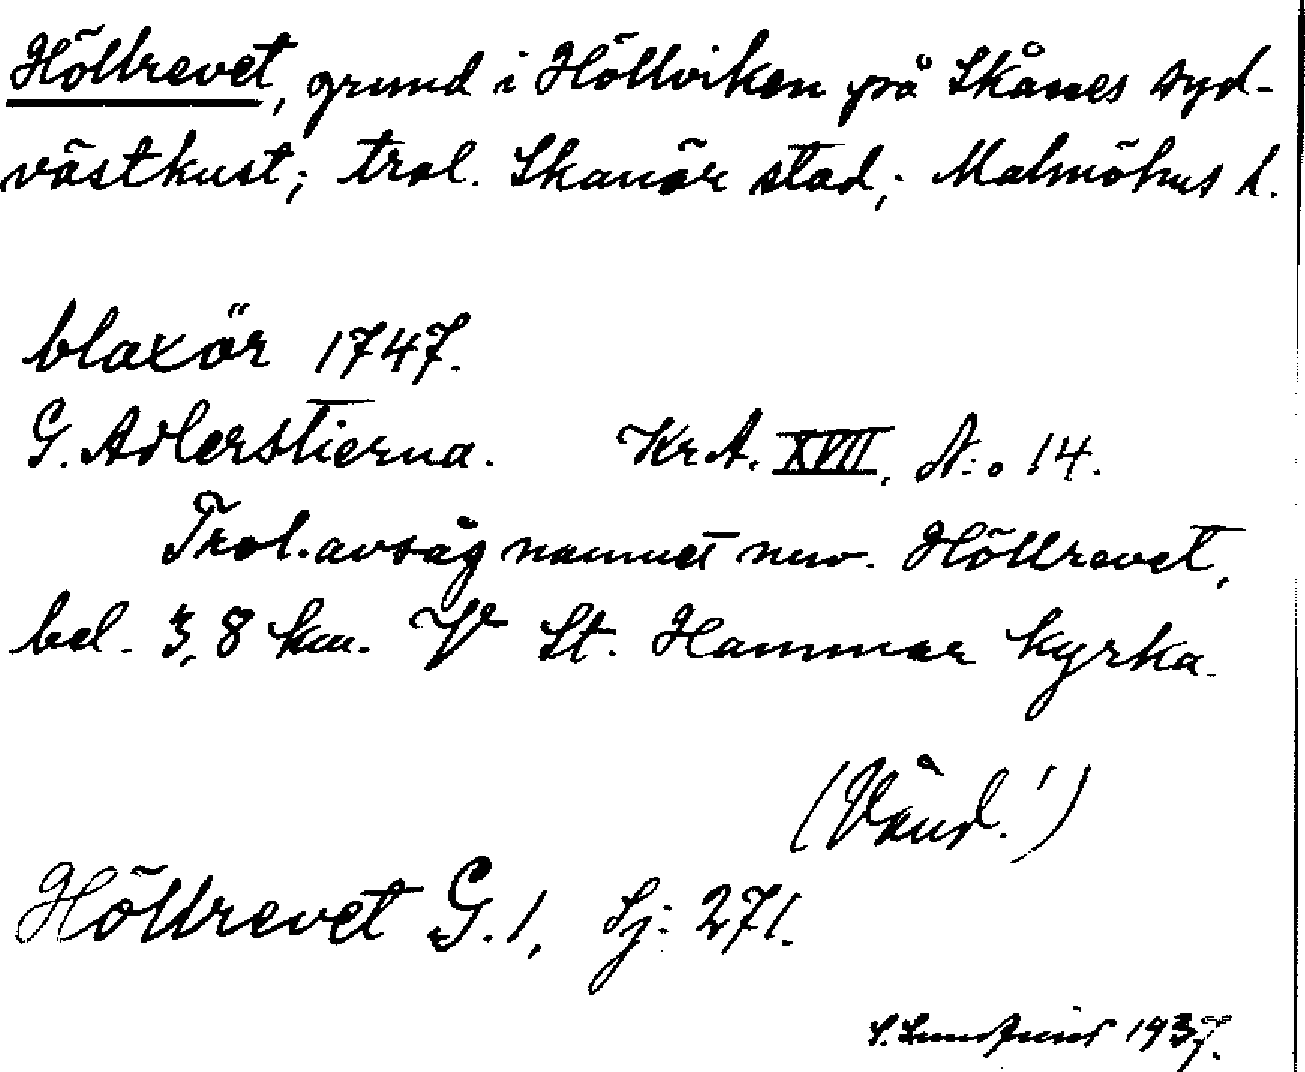 Höllrevet, grund i Höllviken på Skånes syd-
västkust; trol. Skanör stad; Malmöhus l.
blaxör 1747.
G. Adlerstierna. Kr. A. XVII, N:o 14.
Trol. avsåg namnet nuv. Höllrevet,
bel. 3,8 km. V St. Hammar kyrka.
(Vänd!)
Höllrevet G. 1, Sj: 271.
1937.